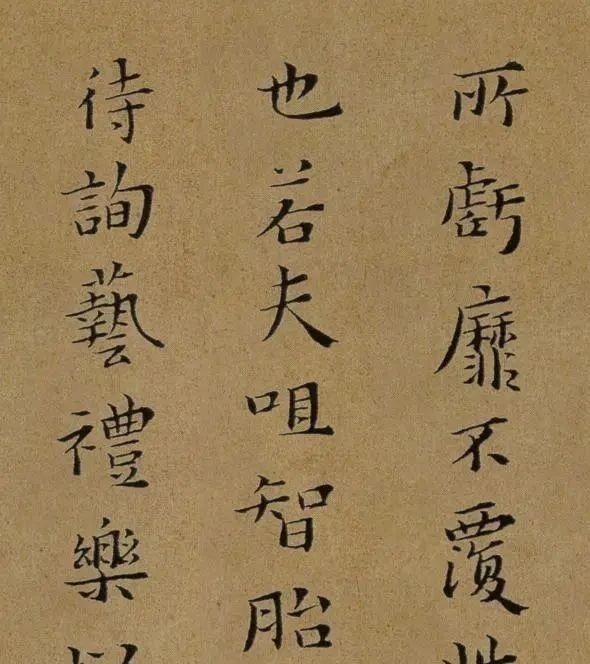 所虧靡不覆
也若夫咀智胎
待詢藝禮樂以